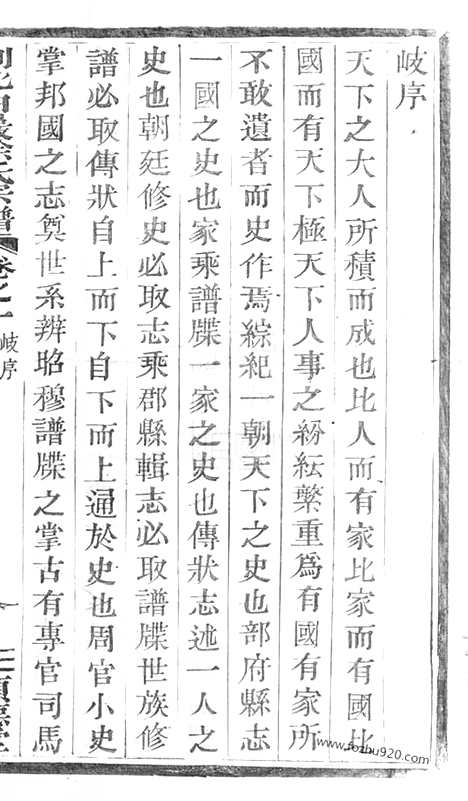 岐序
天下之大人所積而成也比人而有家比家而有國比
國而有天下極天下人事之紛紜繁重爲有國有家所
不敢遺者而史作焉綜紀一朝天下之史也部府縣志
一國之史也家乘譜牒一家之史也傳狀志述一人之
史也朝廷修史必取志乘郡縣輯志必取譜牒世族修
譜必取傳狀自上而下自下而上通於史也周官小史
掌邦國之志奠世系辨昭穆譜牒之掌古有專官司馬
氏宗譜 卷之一 岐序
www.fozhu920.com